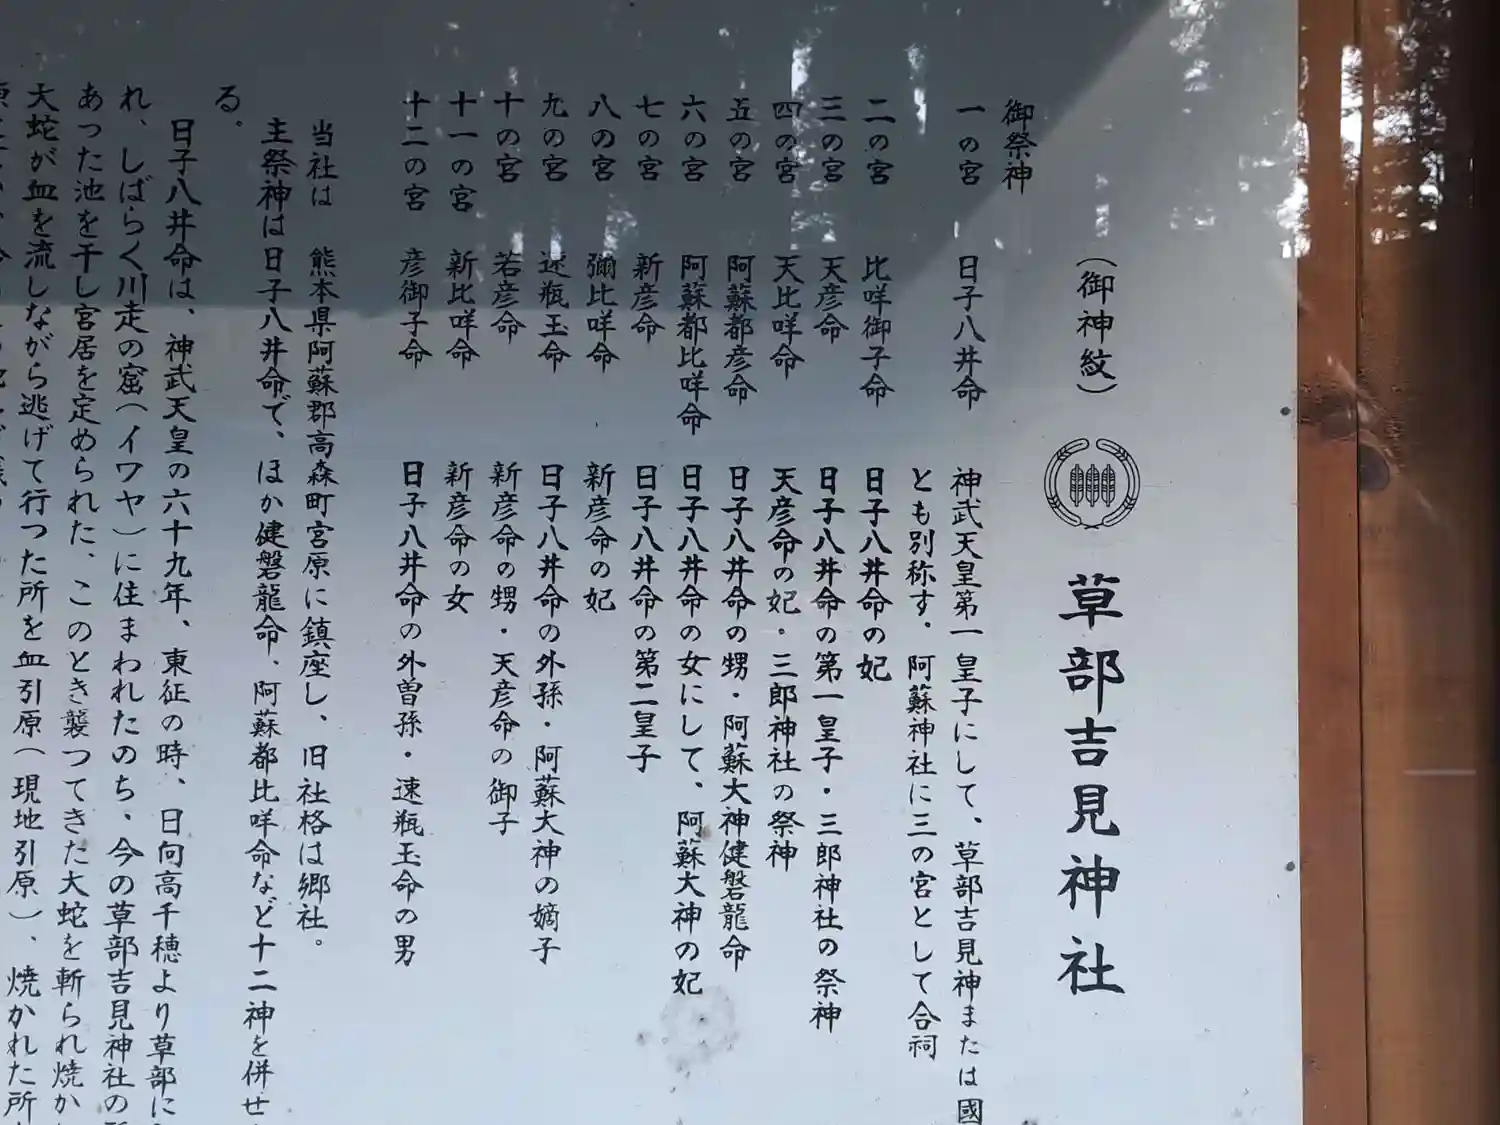 (御神紋) 草部吉見神社
御祭神
一の宮 日子八井命 神武天皇第一皇子にして、草部吉見神または國
とも別称す. 阿蘇神社に三の宮として合祠
二の宮 比咩御子命 日子八井命の妃
三の宮 天彦命 日子八井命の第一皇子・三郎神社の祭神
四の宮 天比咩命 天彦命の妃・三郎神社の祭神
五の宮 阿蘇都彦命 日子八井命の甥・阿蘇大神健磐龍命
六の宮 阿蘇都比咩命 日子八井命の女にして、阿蘇大神の妃
七の宮 新彦命 日子八井命の第二皇子
八の宮 彌比咩命 新彦命の妃
九の宮 速瓶玉命 日子八井命の外孫・阿蘇大神の嫡子
十の宮 若彦命 新彦命の甥・天彦命の御子
十一の宮 新比咩命 新彦命の女
十二の宮 彦御子命 日子八井命の外曽孫・速瓶玉命の男
当社は 熊本県阿蘇郡高森町宮原に鎮座し、旧社格は郷社。
主祭神は日子八井命で、ほか健磐龍命、阿蘇都比咩命など十二神を併せ
る。
日子八井命は、神武天皇の六十九年、東征の時、日向高千穂より草部に
れ、しばらく川走の窟(イワヤ)に住まわれたのち、今の草部吉見神社の
あった池を干し宮居を定められた、このとき襲つてきた大蛇を斬られ焼か
大蛇が血を流しながら逃げて行つた所を血引原(現地引原)、焼かれた所